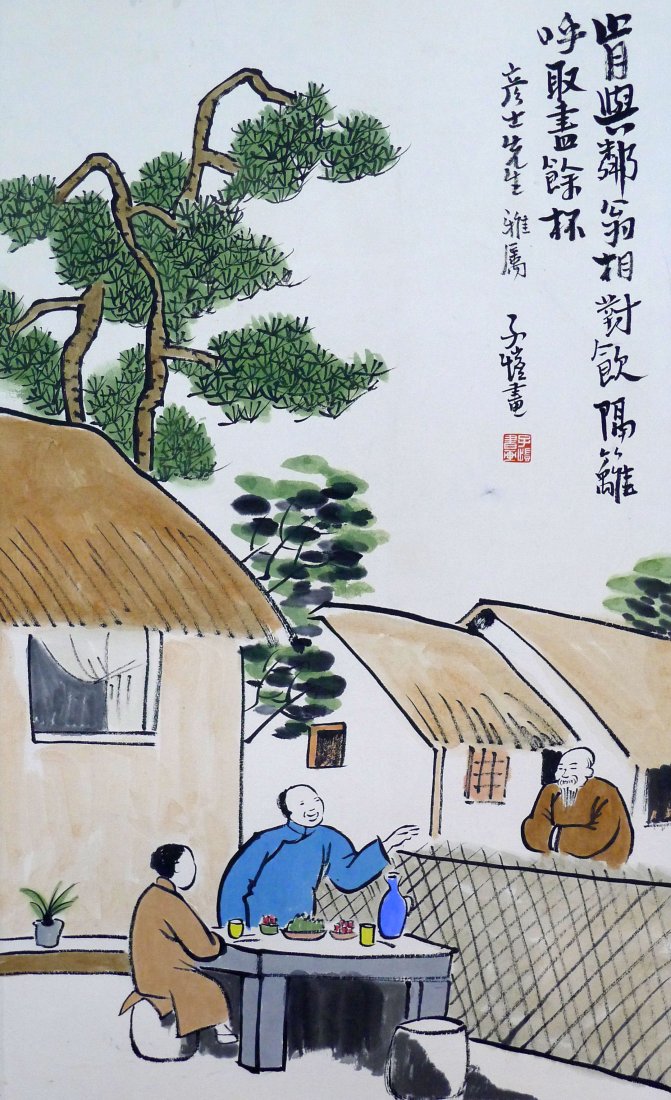 肯與鄰翁相對飲隔籬
呼取盡餘杯
彦士先生 雅屬 子愷畫